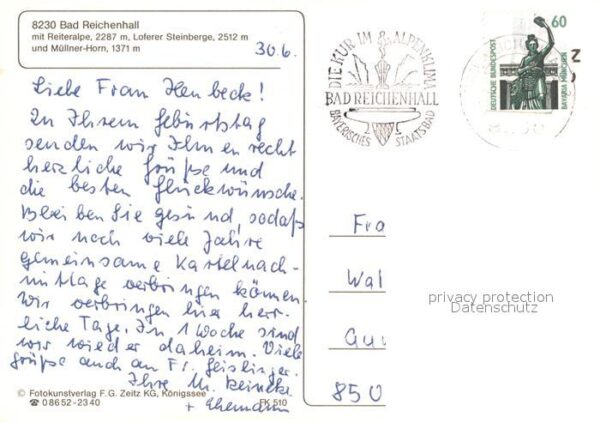 8230 Bad Reichenhall
mit Reiteralpe, 2287 m, Loferer Steinberge, 2512 m
und Müllner-Horn, 1371 m
30.6.
Liebe Frau Henbeck!
Zu Ihrem Geburtstag
senden wir Ihnen recht
herzliche Grüße und
die besten Glückwünsche.
Bleiben Sie gesund, sodaß
wir noch viele Jahre
gemeinsame Kartelnach-
mittage verbringen können.
Wir verbringen hier herr-
liche Tage. In 1 Woche sind
wir wieder daheim. Viele
Grüße auch an Fr. Geislinger.
Ihre M. Reineke
+ Ehemann
© Fotokunstverlag F.G. Zeitz KG, Königssee
☎ 0 86 52-23 40
FK 510
DIE KUR IM ALPENKLIMA
BAD REICHENHALL
BAYERISCHES STAATSBAD
60
DEUTSCHE BUNDESPOST
BAVARIA MÜNCHEN
Fra
Wal
privacy protection
Datenschutz
850